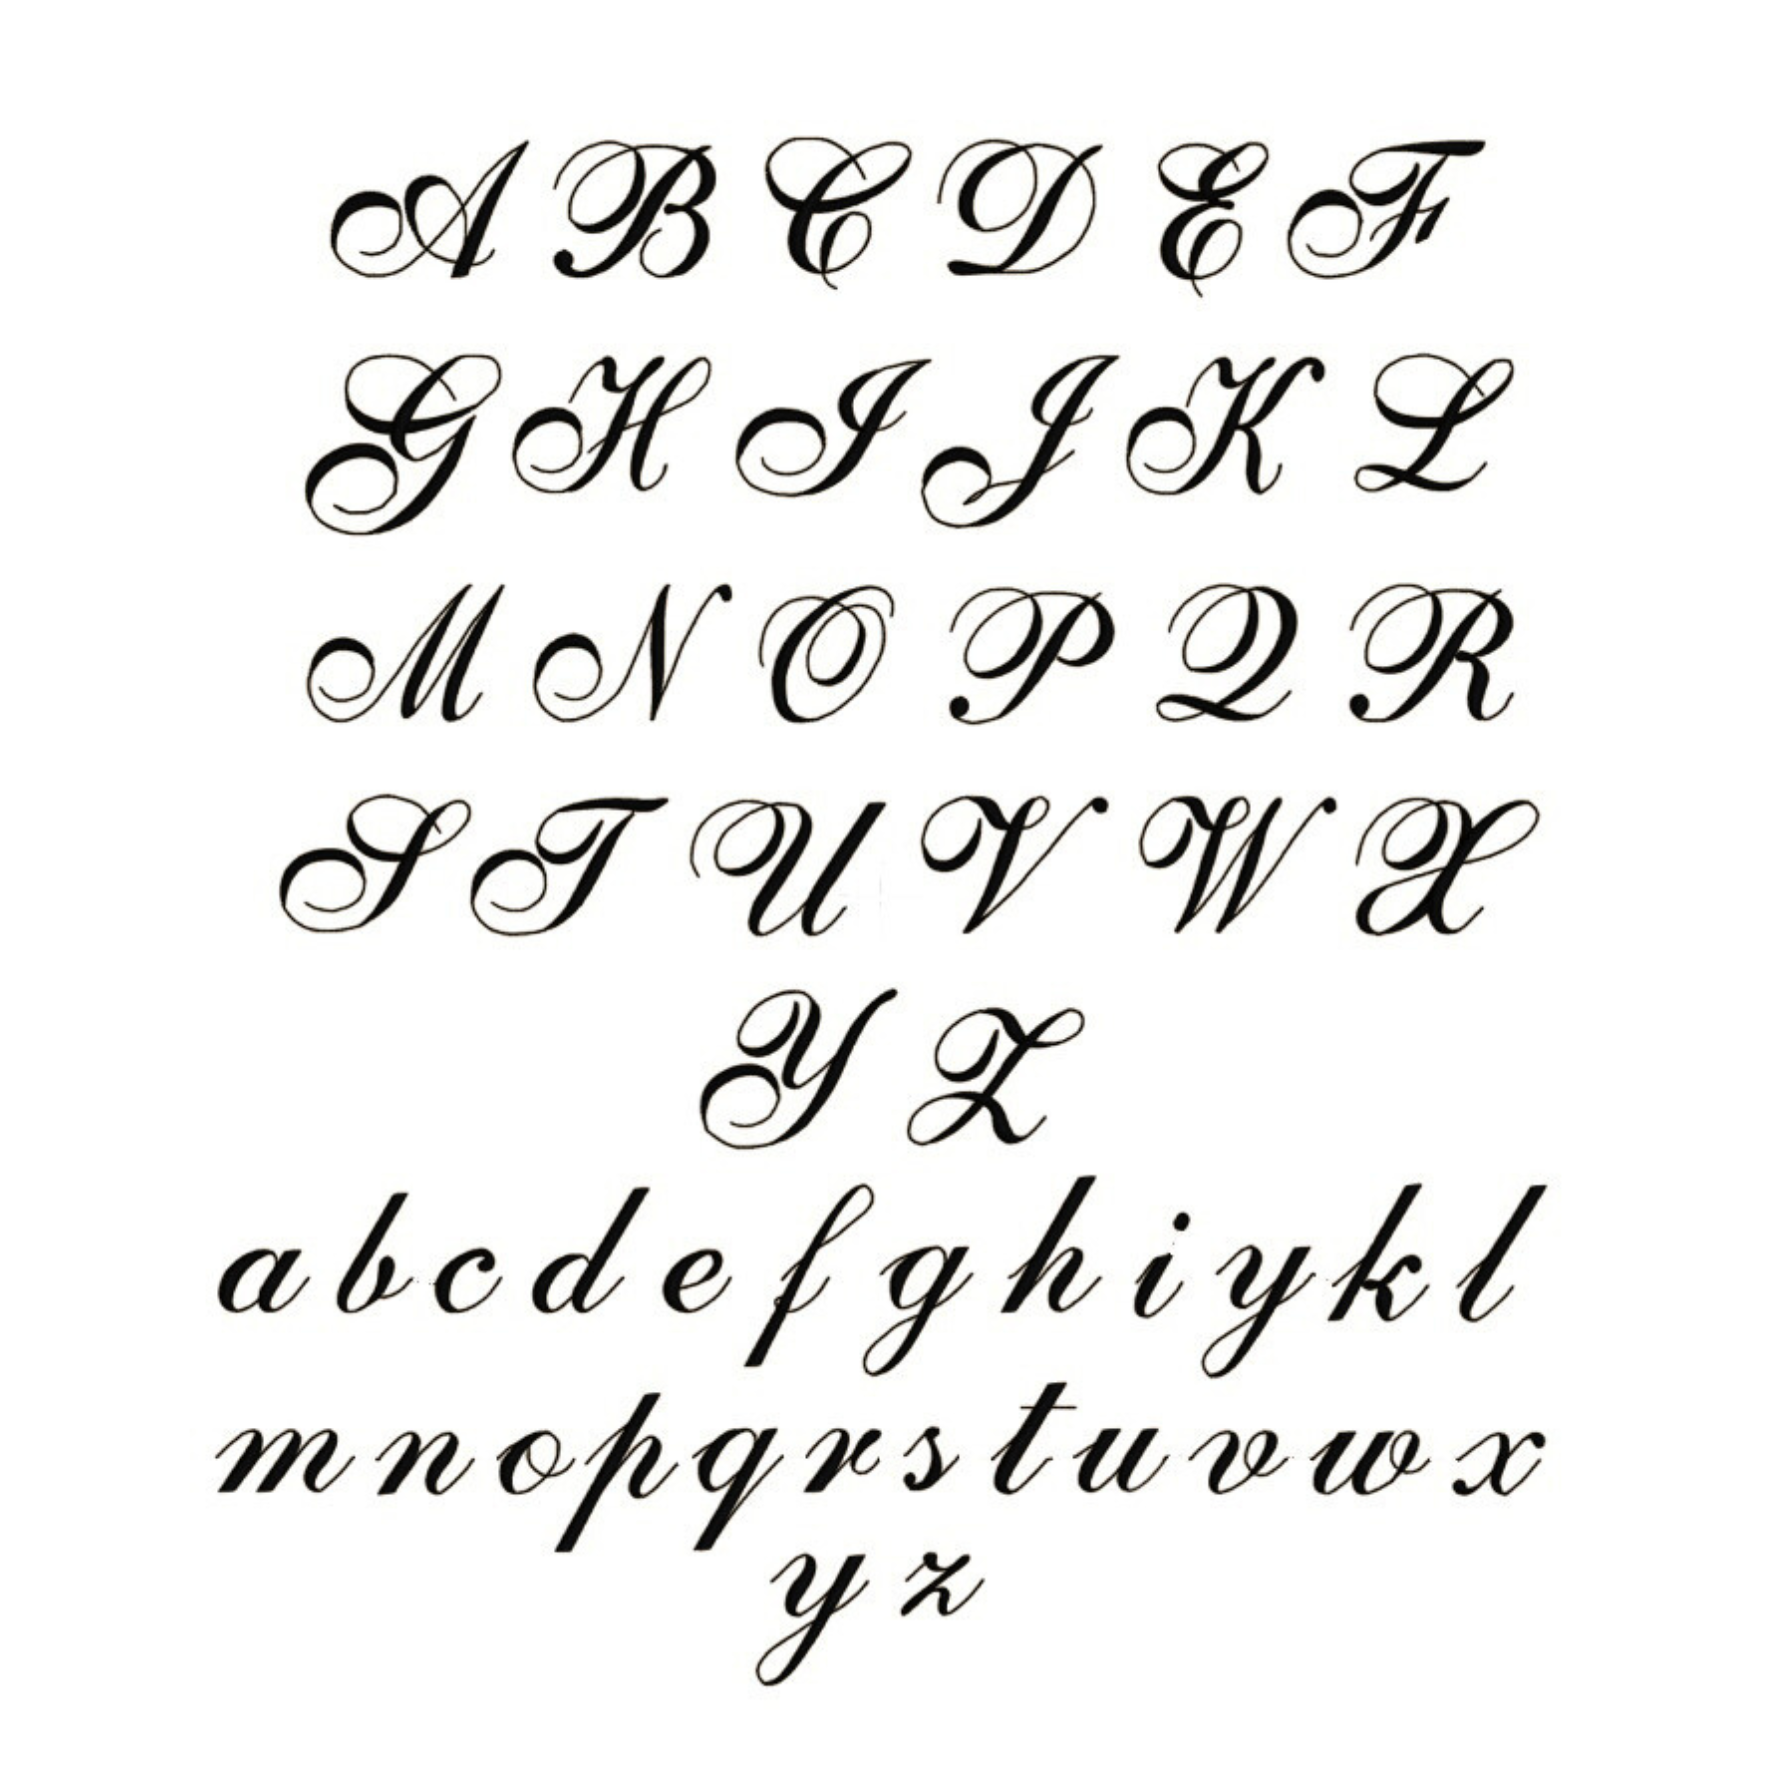 A B C D E F
G H I J K L
M N O P Q R
S T U V W X
Y Z
a b c d e f g h i y k l
m n o p q r s t u v w x
y z